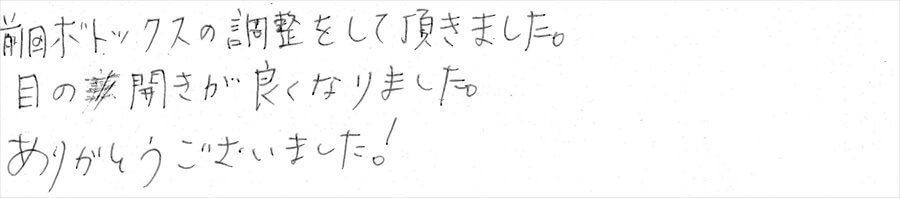 前回ボトックスの調整をして頂きました。
目の開きが良くなりました。
ありがとうございました。!